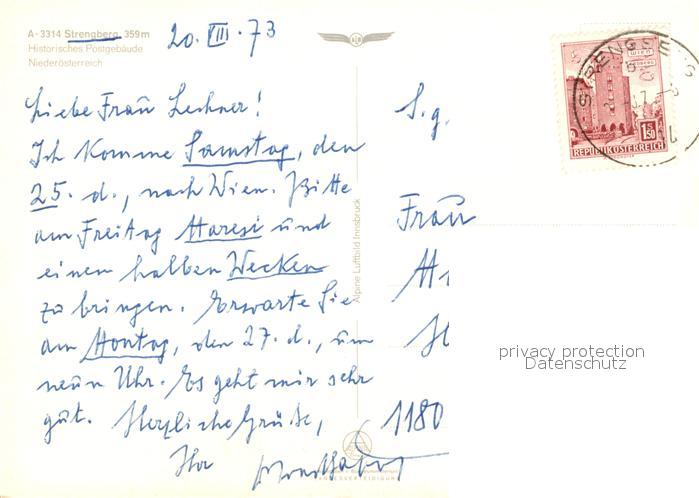 A-3314 Strengberg, 359m
Historisches Postgebäude
Niederösterreich
20. VIII. 73
Liebe Frau Lechner!
Ich komme Samstag, den
25. d., nach Wien. Bitte
am Freitag Maresi und
einen halben Wecken
zu bringen. Erwarte Sie
am Montag, den 27. d., um
neun Uhr. Es geht mir sehr
gut. Herzliche Grüße,
Ihr
Alpine Luftbild Innsbruck
S.g.
Frau
1180
REPUBLIK ÖSTERREICH
1.50
privacy protection
Datenschutz